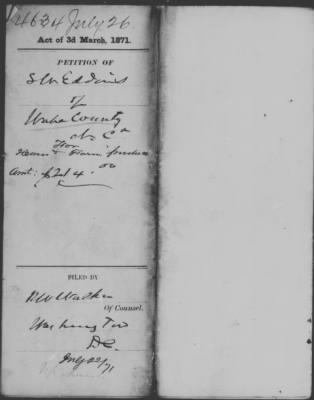 14634 July 26
Act of 3d March, 1871.
PETITION OF
S W Eddins
of
Wake County
N. C a
For
& Farm produce
Amt:
FILED BY
Walker
Of Counsel.
Washington
D.C.
July 22/71